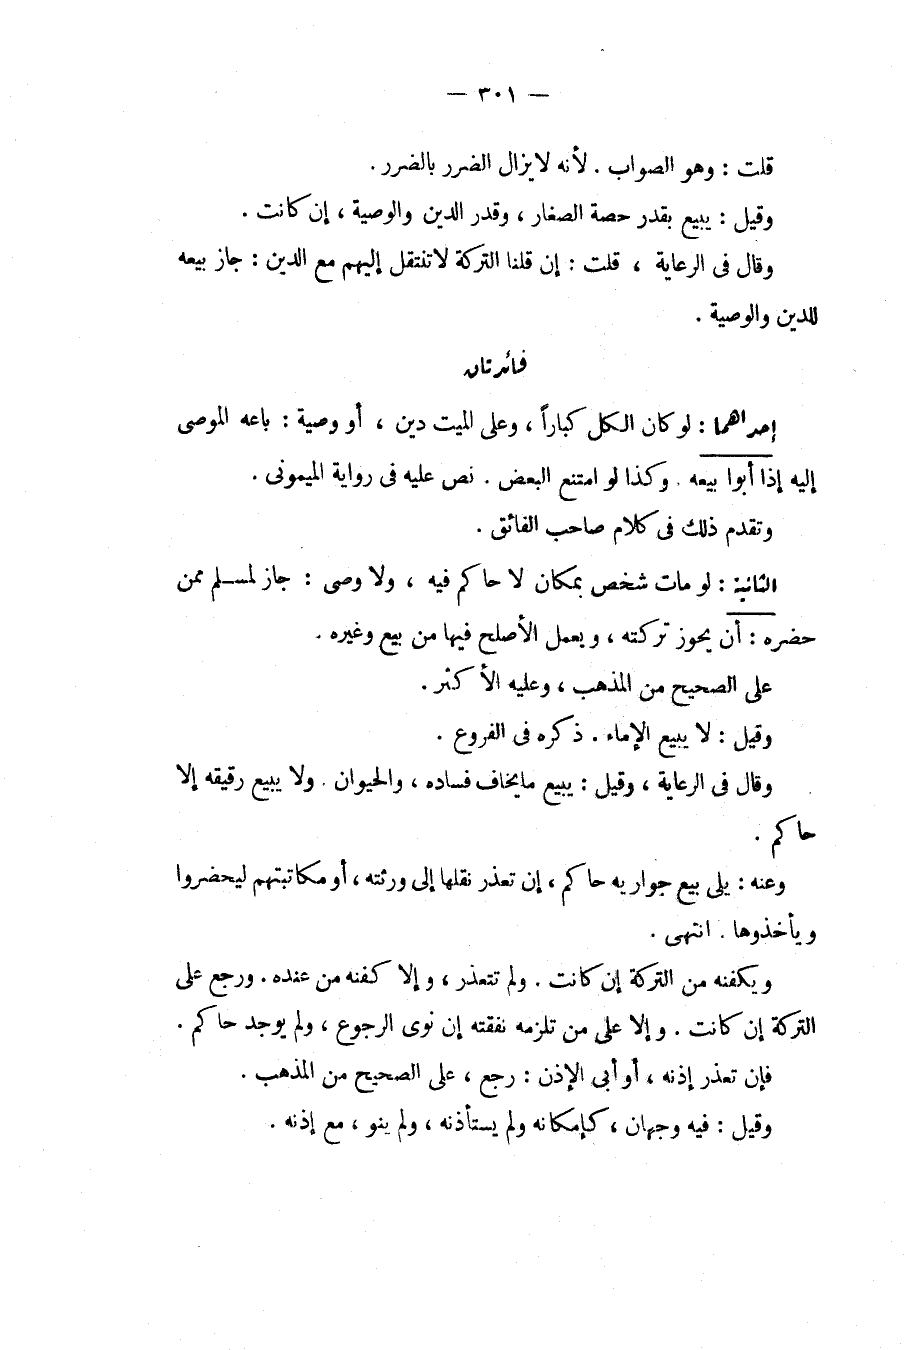 — ٣٠١ —
قلت : وهو الصواب . لأنه لا يزال الضرر بالضرر .
وقيل : يبيع بقدر حصة الصغار ، وقدر الدين والوصية ، إن كانت .
وقال فى الرعاية ، قلت : إن قلنا التركة لا تنتقل إليهم مع الدين : جاز بيعه
للدين والوصية .
فائدتان
إحداهما : لو كان الكل كباراً ، وعلى الميت دين ، أو وصية : باعه الموصى
إليه إذا أبوا بيعه . وكذا لو امتنع البعض . نص عليه فى رواية الميمونى .
وتقدم ذلك فى كلام صاحب الفائق .
الثانية : لو مات شخص بمكان لا حاكم فيه ، ولا وصى : جاز لمسلم ممن
حضره : أن يحوز تركته ، ويعمل الأصلح فيها من بيع وغيره .
على الصحيح من المذهب ، وعليه الأكثر .
وقيل : لا يبيع الإماء . ذكره فى الفروع .
وقال فى الرعاية ، وقيل : يبيع ما يخاف فساده ، والحيوان . ولا يبيع رقيقه إلا
حاكم .
وعنه : يلى بيع جواريه حاكم ، إن تعذر نقلها إلى ورثته ، أو مكاتبتهم ليحضروا
ويأخذوها . انتهى .
ويكفنه من التركة إن كانت . ولم تتعذر ، وإلا كفنه من عنده . ورجع على
التركة إن كانت . وإلا على من تلزمه نفقته إن نوى الرجوع ، ولم يوجد حاكم .
فإن تعذر إذنه ، أو أبى الإذن : رجع ، على الصحيح من المذهب .
وقيل : فيه وجهان ، كإمكانه ولم يستأذنه ، ولم ينو ، مع إذنه .